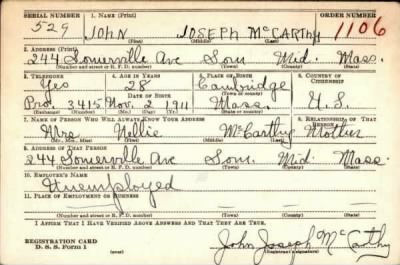 SERIAL NUMBER 1. NAME (Print) ORDER NUMBER
529 JOHN JOSEPH McCARTHY 1106
(First) (Middle) (Last)
2. ADDRESS (Print)
244 Somerville Ave Som Mid. Mass.
(Number and street or R. F. D. number) (Town) (County) (State)
3. TELEPHONE 4. AGE IN YEARS 5. PLACE OF BIRTH 6. COUNTRY OF CITIZENSHIP
Yes 28 Cambridge
DATE OF BIRTH (Town or county)
Pro. 2415 Nov. 2 1911 Mass. U.S.
7. NAME OF PERSON WHO WILL ALWAYS KNOW YOUR ADDRESS 8. RELATIONSHIP OF THAT PERSON
Mrs Nellie McCarthy Mother
(Mr., Mrs., Miss) (First) (Middle) (Last)
9. ADDRESS OF THAT PERSON
244 Somerville Ave Som. Mid. Mass.
(Number and street or R. F. D. number) (Town) (County) (State)
10. EMPLOYER'S NAME
Unemployed
11. PLACE OF EMPLOYMENT OR BUSINESS
(Number and street or R. F. D. number) (Town) (County) (State)
I AFFIRM THAT I HAVE VERIFIED ABOVE ANSWERS AND THAT THEY ARE TRUE.
REGISTRATION CARD
D. S. S. Form 1
John Joseph McCarthy
(Registrant's signature)